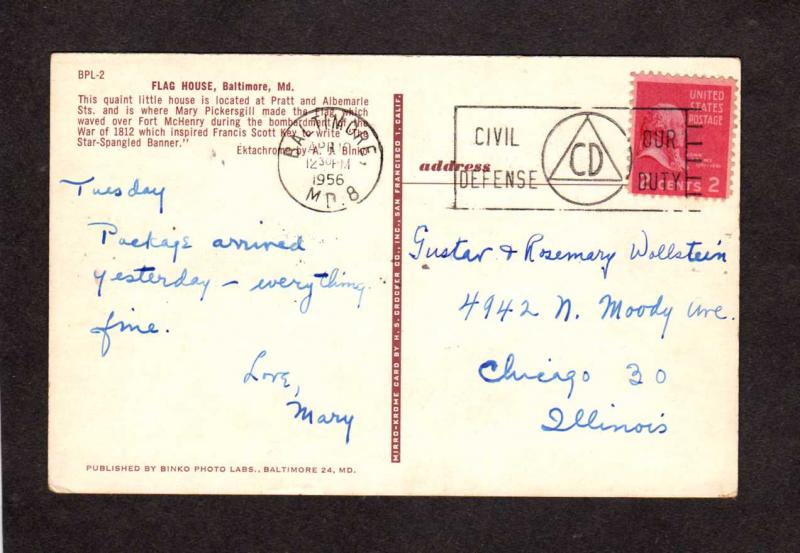 BPL-2
FLAG HOUSE, Baltimore, Md.
This quaint little house is located at Pratt and Albemarle
Sts. and is where Mary Pickersgill made the Flag which
waved over Fort McHenry during the bombardment of the
War of 1812 which inspired Francis Scott Key to write "The
Star-Spangled Banner."
Ektachrome by A. A. Binko
BALTIMORE,
APR 10
12 30 PM
1956
MD. 8
CIVIL
DEFENSE
CD
OUR
DUTY
UNITED
STATES
POSTAGE
CENTS 2
address
Tuesday
Package arrived
yesterday – everything
fine.
Love,
Mary
MIRRO-KROME CARD BY H. S. CROCKER CO., INC., SAN FRANCISCO 1, CALIF.
Gustav & Rosemary Wollstein
4942 N. Moody Ave.
Chicago 30
Illinois
PUBLISHED BY BINKO PHOTO LABS., BALTIMORE 24, MD.